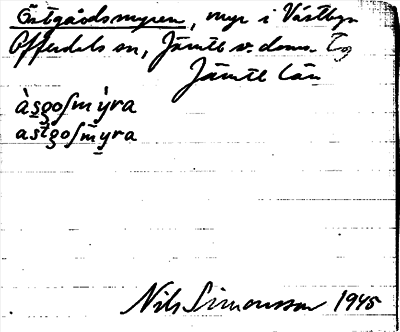 Östgårdsmyren, myr i Västbyn
Offerdals sn, Jämtl. v. doms. Tg
Jämtl. län
àsgoſmỳra
astgoſmyra
Nils Simonsson 1945